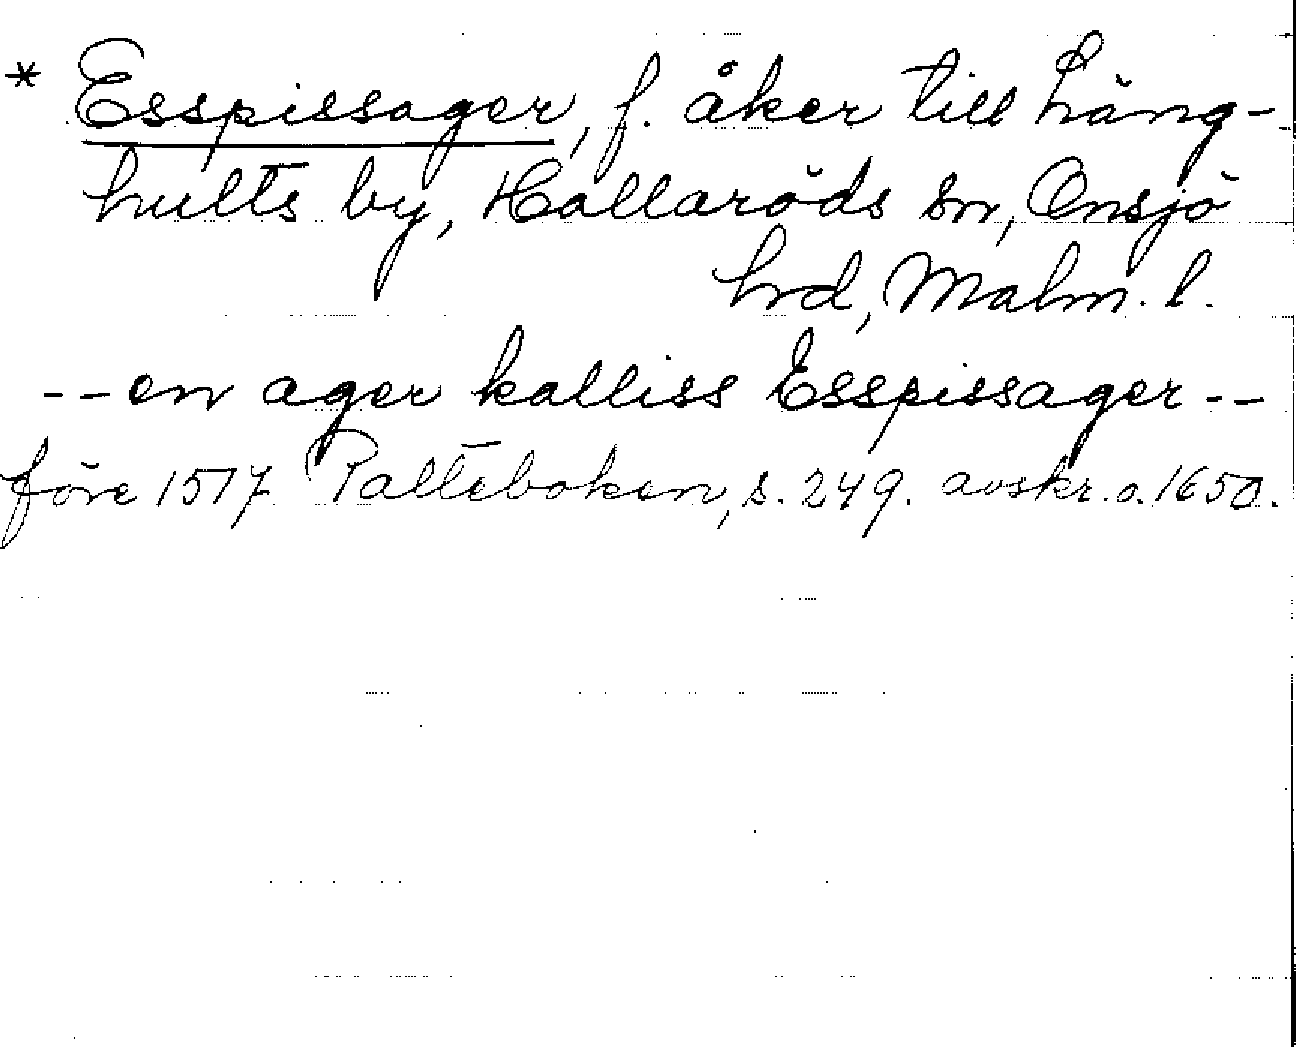 * Esspissager, f. åker till Läng-
hults by, Hallaröds sn, Onsjö
hrd, Malm. l.
-- en ager kalliss Esspissager --
före 1517 Palteboken, s. 249. avskr. o. 1650.